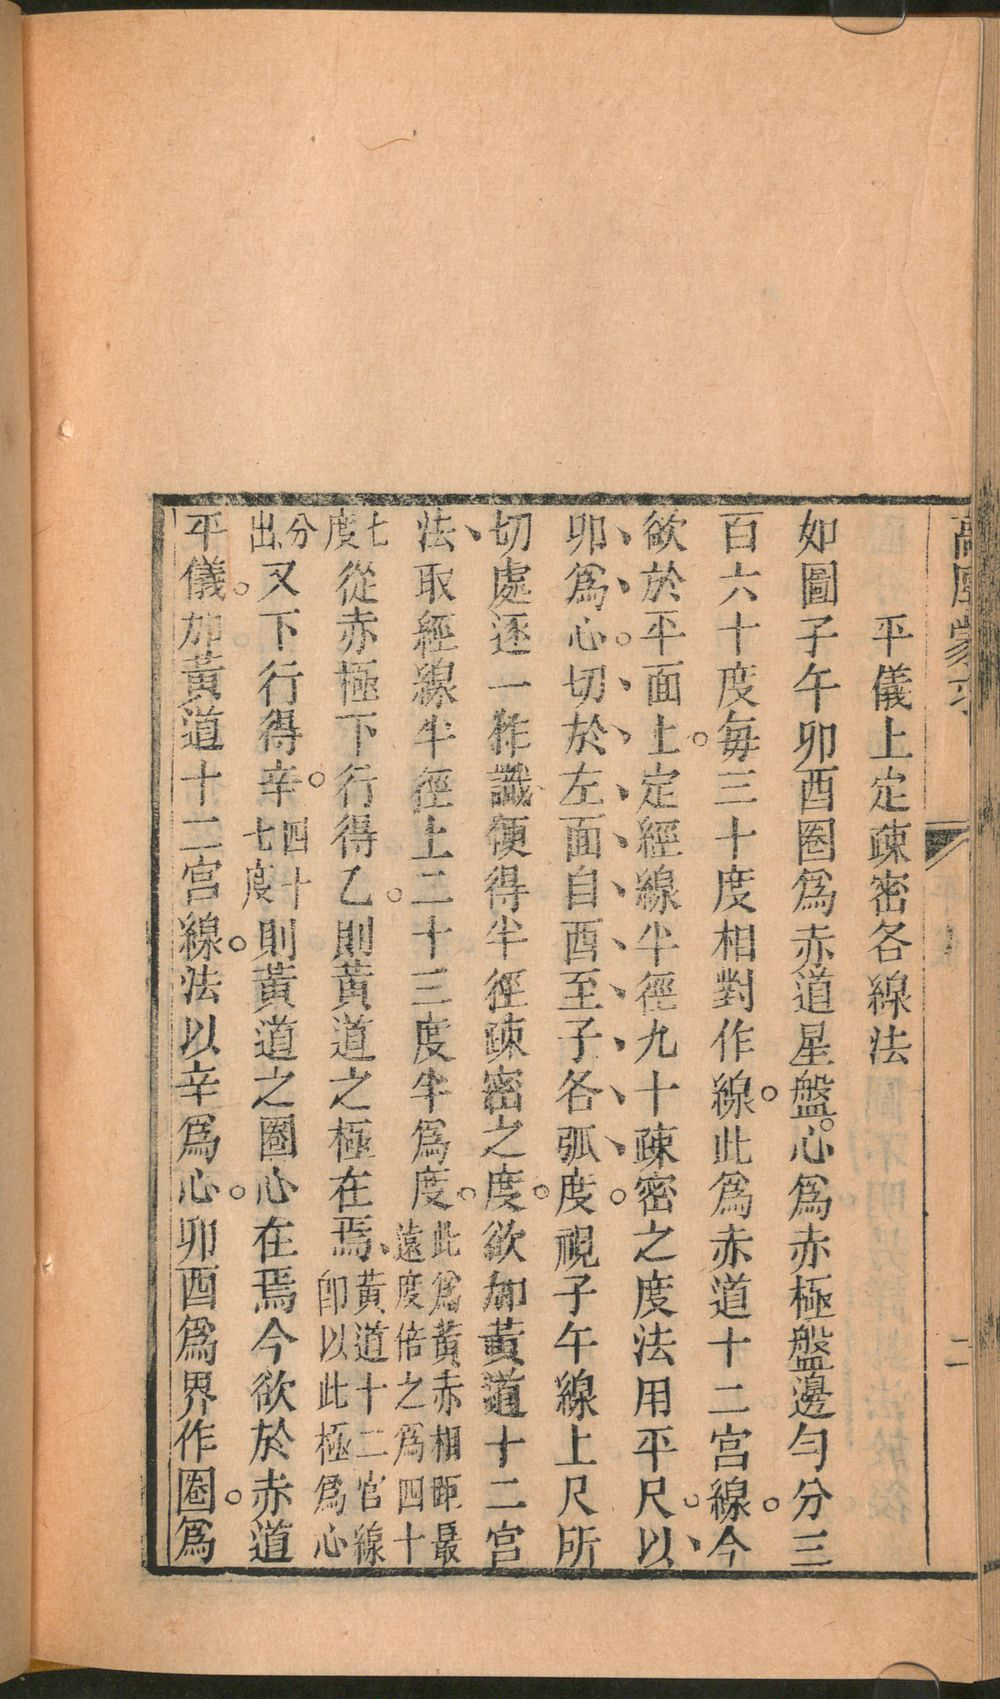 平儀上定疎密各線法
如圖子午卯酉圈爲赤道星盤心爲赤極盤邊勻分三
百六十度每三十度相對作線此爲赤道十二宮線今
欲於平面上定經線半徑九十疎密之度法用平尺以
卯爲心切於左面自酉至子各弧度視子午線上尺所
切處逐一作識便得半徑疎密之度欲加黃道十二宮
法取經線半徑上二十三度半爲度此爲黃赤相距最遠度倍之爲四十
七度從赤極下行得乙則黃道之極在焉黃道十二宮線卽以此極爲心
分出又下行得辛四十七度則黃道之圈心在焉今欲於赤道
平儀加黃道十二宮線法以辛爲心卯酉爲界作圈爲
二